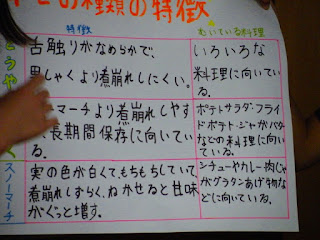 の種類の特徴
特徴
むいている料理
とうや
舌触りがなめらかで、
男しゃくより煮崩れしにくい。
いろいろな
料理に向いている。
マーチより煮崩れしやす
長期間保存に向いてい
る。
ポテトサラダ・フライ
ドポテト・ジャがバタ
などの料理に向い
ている。
スノーマーチ
実の色が白くて、もちもちしていて、
煮崩れしずらく、ねかせると甘味
がぐっと増す。
シチューやカレー肉じゃ
がグラタンあげ物な
どに向いている。